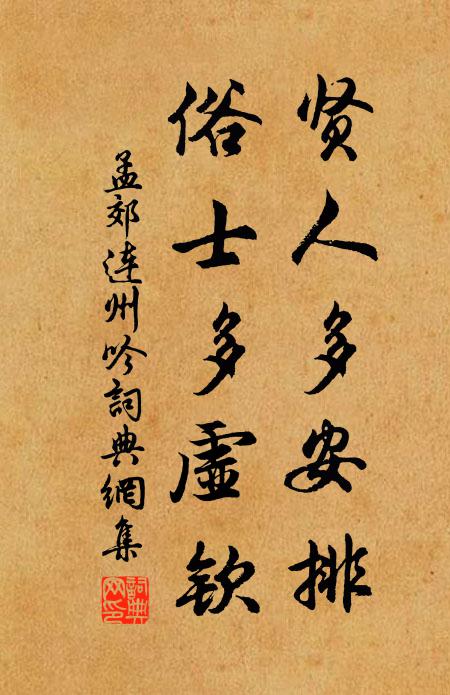 贤人多安排
俗士多虚钦
孟郊连州吟詞典網集
詞典网印